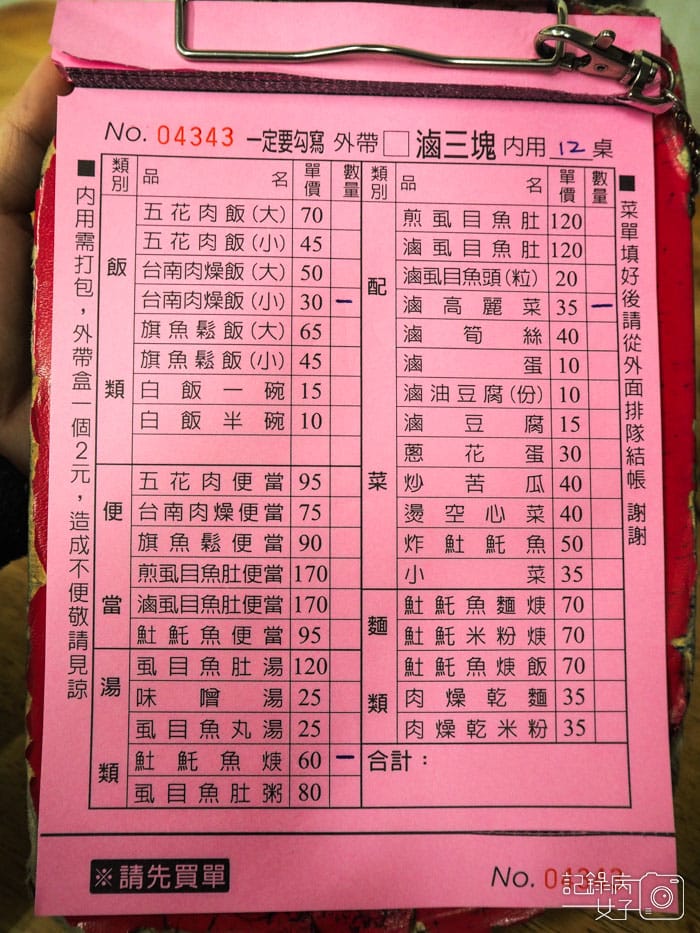 No. 04343 一定要勾寫 外帶 □ 滷三塊 內用 12 桌
■內用需打包，外帶盒一個2元，造成不便敬請見諒
類別 品名 單價 數量
飯類
五花肉飯(大) 70
五花肉飯(小) 45
台南肉燥飯(大) 50
台南肉燥飯(小) 30 一
旗魚鬆飯(大) 65
旗魚鬆飯(小) 45
白飯一碗 15
白飯半碗 10
便當
五花肉便當 95
台南肉燥便當 75
旗魚鬆便當 90
煎虱目魚肚便當 170
滷虱目魚肚便當 170
魠魚便當 95
湯類
虱目魚肚湯 120
味噌湯 25
虱目魚丸湯 25
魠魚焿 60 一
虱目魚肚粥 80
類別 品名 單價 數量
配菜
煎虱目魚肚 120
滷虱目魚肚 120
滷虱目魚頭(粒) 20
滷高麗菜 35 一
滷筍絲 40
滷蛋 10
滷油豆腐(份) 10
滷豆腐 15
蔥花蛋 30
炒苦瓜 40
燙空心菜 40
炸魠魚 50
小菜 35
麵類
魠魚麵焿 70
魠米粉焿 70
魠魚焿飯 70
肉燥乾麵 35
肉燥乾米粉 35
合計：
■菜單填好後請從外面排隊結帳 謝謝
※請先買單
No. 04343
記錄病女子